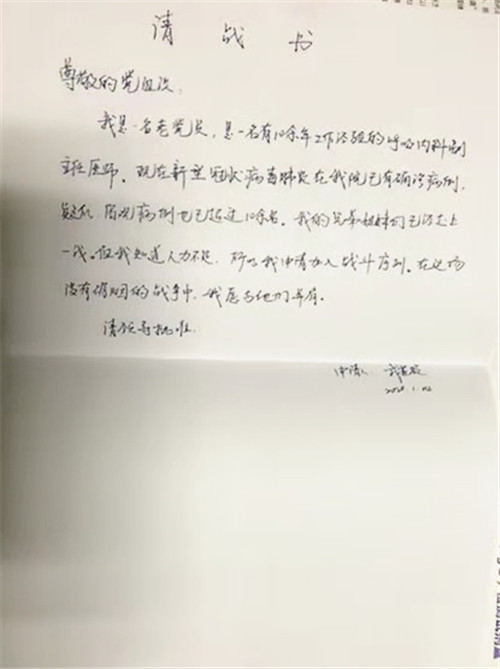 请战书
尊敬的党组织：
我是一名老党员，是一名有10余年工作经验的呼吸内科副
主任医师。现在新型冠状病毒肺炎在我院已有确诊病例，
疑似、留观病例也已超过10余名。我的兄弟姐妹们已经走上
一线。但我知道人力不足，所以我申请加入战斗序列。在这场
没有硝烟的战争中，我愿与他们并肩。
请领导批准。
申请人
2020.1.